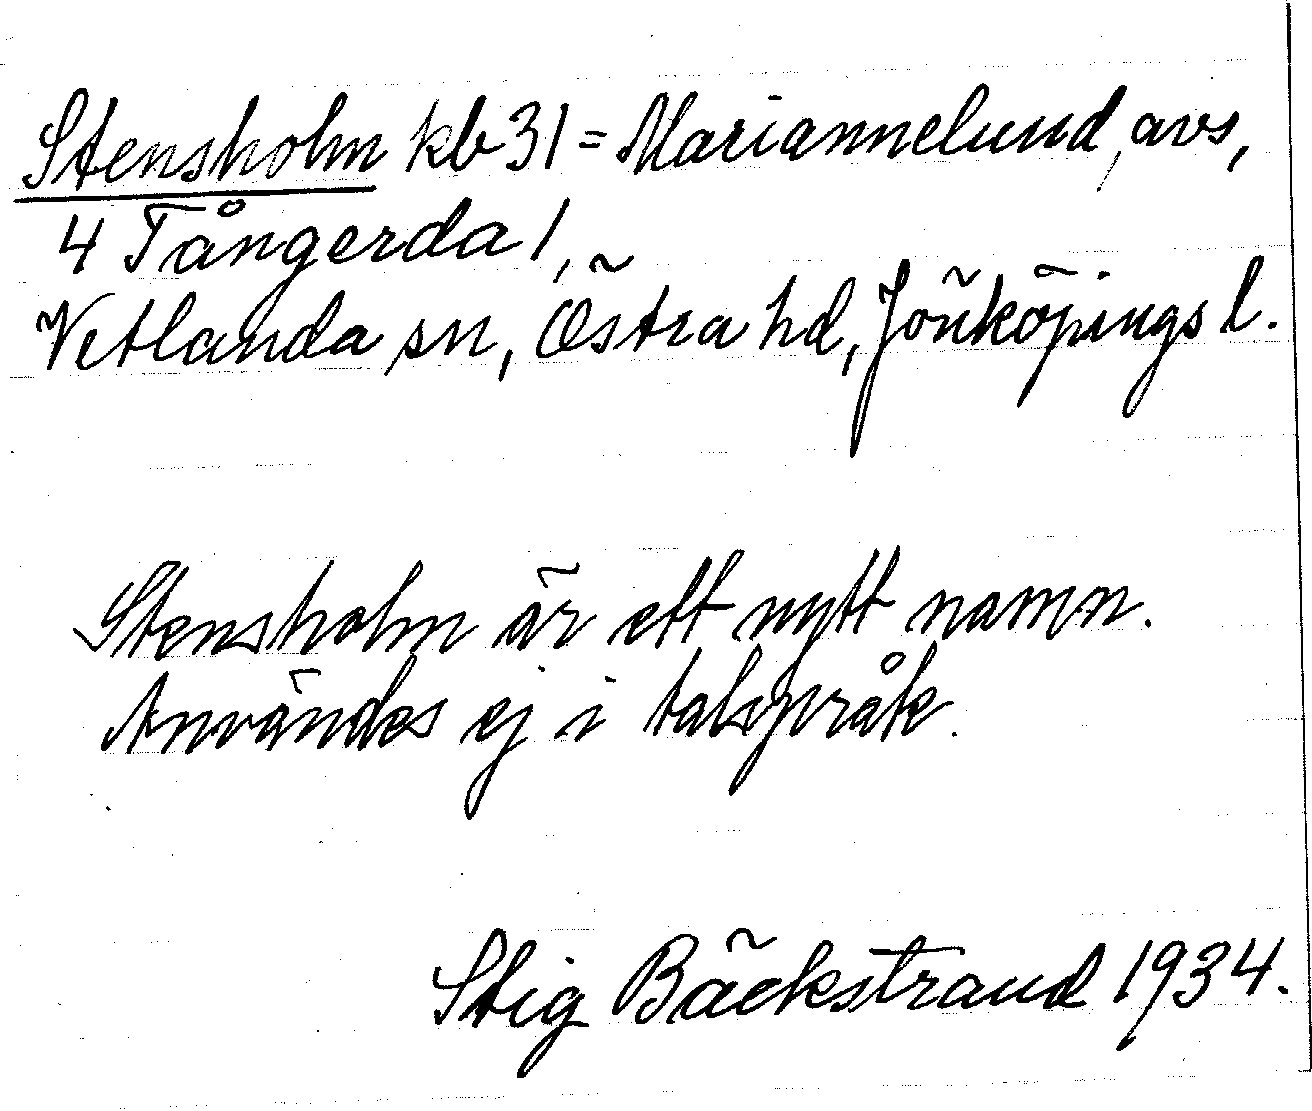 Stensholm kb 31 = Mariannelund, avs,
4 Tångerda 1,
Vetlanda sn, Östra hd, Jönköpings l.
Stensholm är ett nytt namn.
Användes ej i talspråk.
Stig Bäckstrand 1934.